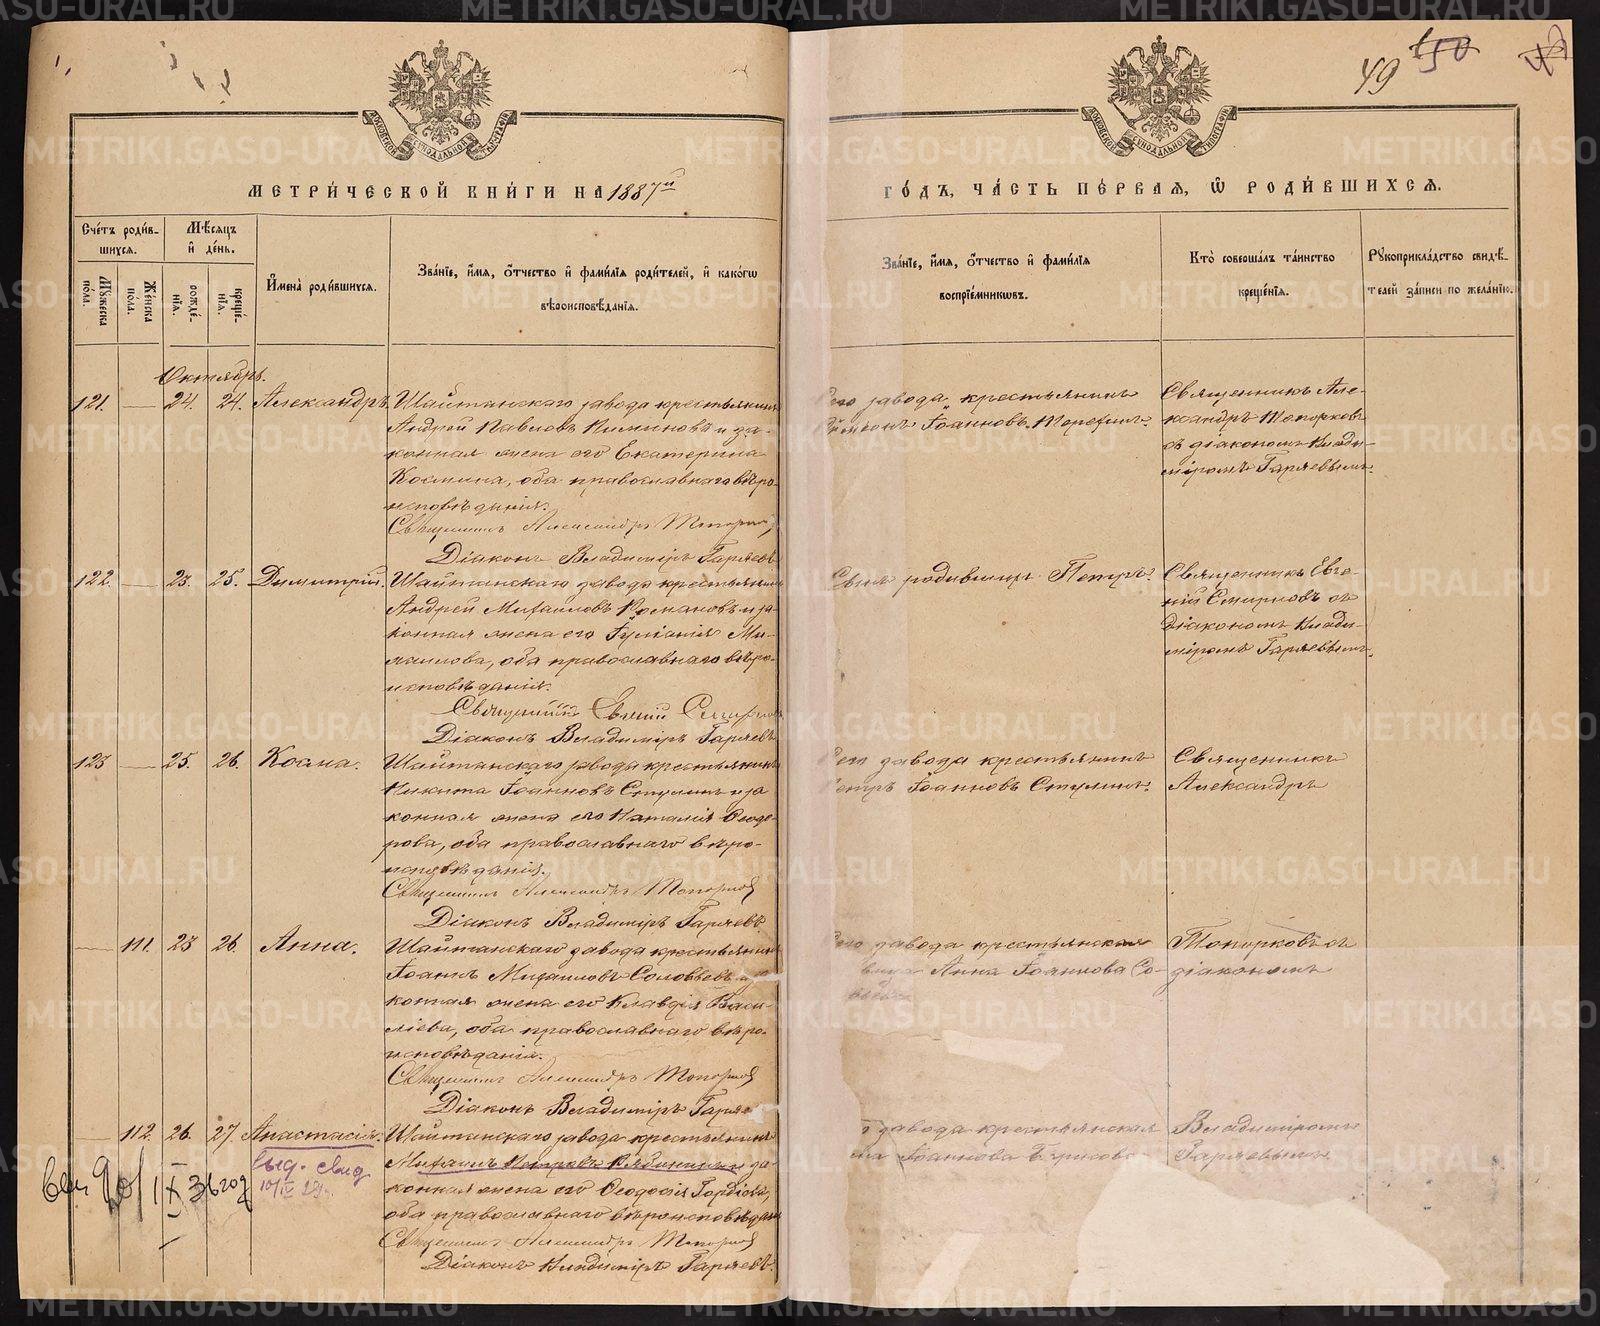 METRIKI.GASO-URAL.RU
49
50
МОСКОВСКОЙ СѴНОДАЛЬНОЙ ТИПОГРАФІИ
МЕТРИ́ЧЕСКОЙ КНИ́ГИ НА 1887й
ГО́ДЪ, ЧА́СТЬ ПЕ́РВАЯ, Ѽ РОДИ́ВШИХСЯ.
Сче́тъ роди́в-
шихся.
Му́жеска по́ла.
Же́нска по́ла.
Мѣ́сяцъ и де́нь.
рожде́-нія.
креще́-нія.
Имена̀ роди́вшихся.
Зва́ніе, и́мя, о́тчество и фами́лія роди́телей, и како́гѡ
вѣроисповѣ́данія.
Зва́ніе, и́мя, о́тчество и фами́лія
воспріе́мникѡвъ.
Кто̀ соверша́лъ та́инство
креще́нія.
Рꙋкоприкла́дство свидѣ́-
телей за́писи по жела́нію.
Октябрь.
121. — 24. 24. Александръ. Шайтанскаго завода крестьянинъ
Андрей Павловъ и за-
конная жена его Екатерина
Космина, оба православнаго вѣро-
исповѣданія.
Священникъ Александръ Топорковъ
Діаконъ Владиміръ Гаряевъ
завода крестьянинъ
Іоанновъ
Священникъ Але-
ксандръ Топорковъ
съ діакономъ Влади-
міромъ Гаряевымъ.
122. — 23. 25. Димитрій. Шайтанскаго завода крестьянинъ
Андрей Михаиловъ Романовъ и за-
конная жена его Іуліанія Ми-
хаилова, оба православнаго вѣро-
исповѣданія.
Священникъ Евгеній Смирновъ
Діаконъ Владиміръ Гаряевъ
Сынъ родившихъ Петръ.
Священникъ Евге-
ній Смирновъ съ
діакономъ Влади-
міромъ Гаряевымъ.
123 — 25. 26. Косма. Шайтанскаго завода крестьянинъ
Никита Іоанновъ Ступинъ и за
конная жена его Наталія Ѳеодо-
рова, оба православнаго вѣро-
исповѣданія.
Священникъ Александръ Топорковъ
Діаконъ Владиміръ Гаряевъ.
завода крестьянинъ
Петръ Іоанновъ Ступинъ.
Священникъ
Александръ
— 111. 23 26. Анна. Шайтанскаго завода крестьянинъ
Іоаннъ Михаиловъ Соловьевъ и за
конная жена его Клавдія Васи-
ліева, оба православнаго вѣро-
исповѣданія.
Священникъ Александръ Топорковъ
Діаконъ Владиміръ Гаряе
завода крестьянская
Анна Іоаннова Со-
Топорковъ съ
діакономъ
— 112. 26. 27. Анастасія. Шайтанскаго завода крестьянинъ
Михаилъ Петровъ и за-
конная жена его Ѳеодосія Гордіова,
оба православнаго вѣроисповѣданія
Священникъ Александръ Топорковъ
Діаконъ Владиміръ Гаряевъ.
завода крестьянская
Іоаннова
Владиміромъ
Гаряевымъ
выд. свид